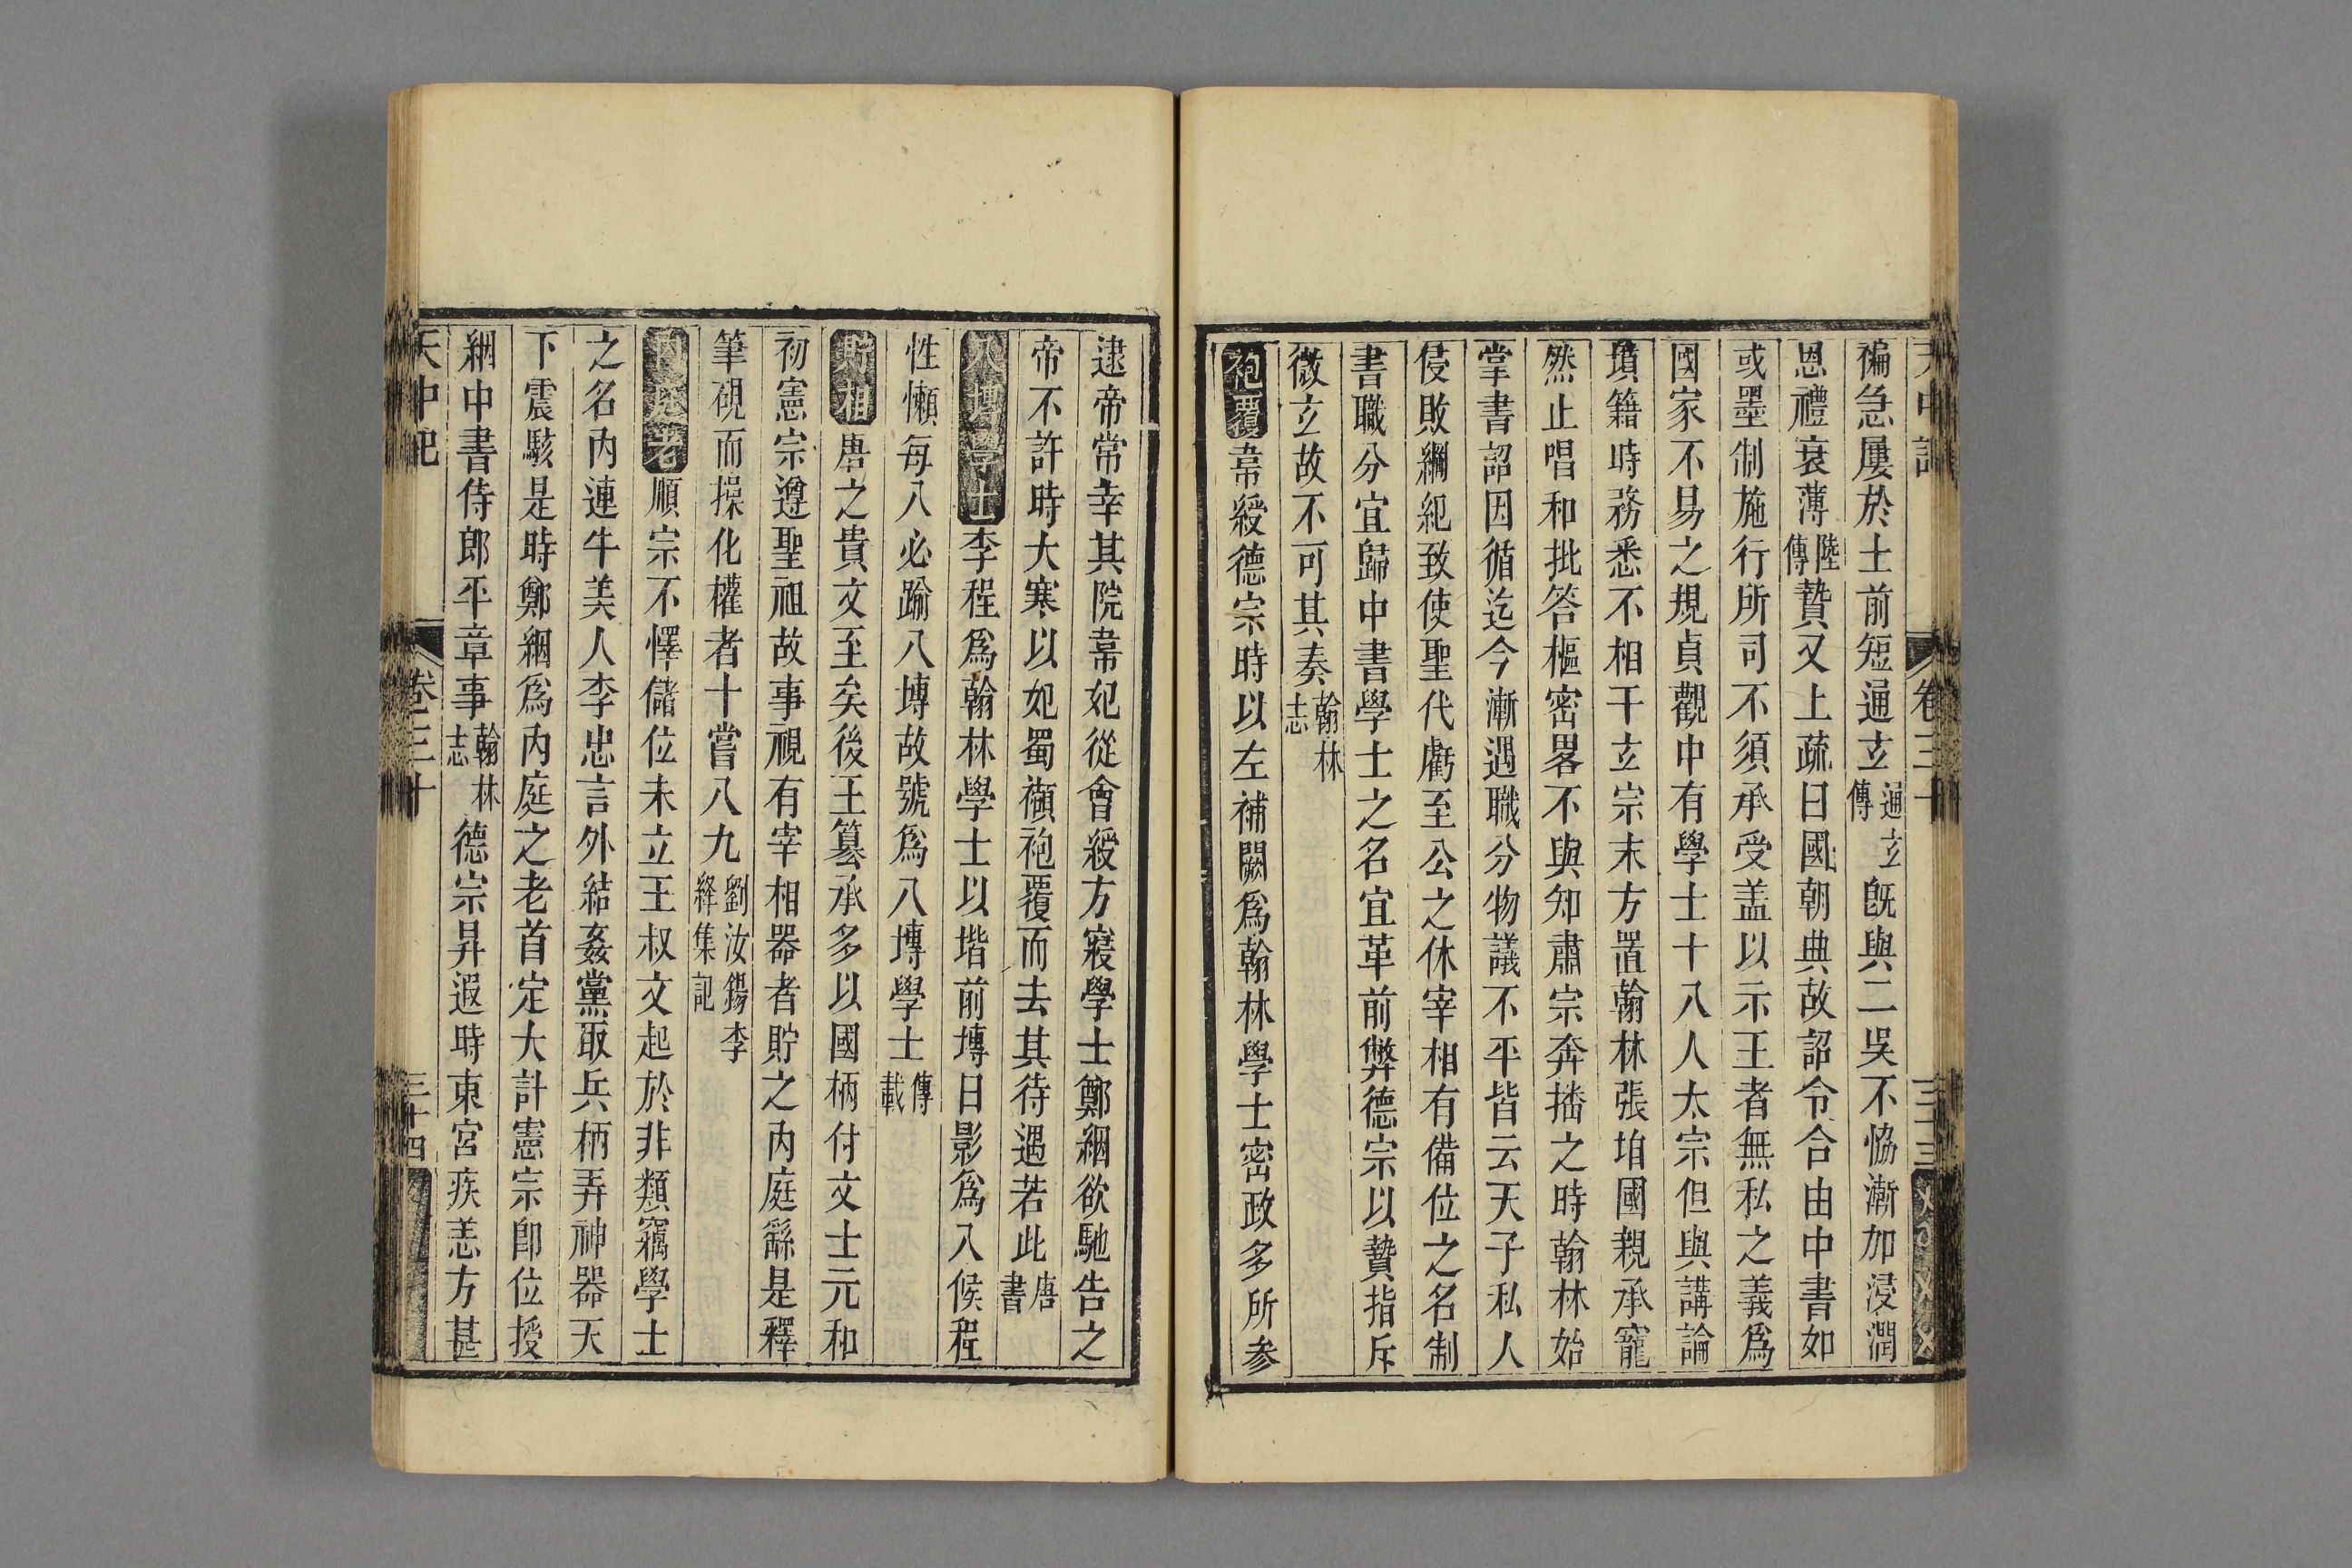 天中記　卷三十　三十三
褊急屢於上前短通玄通玄傳既與二吳不恊漸加浸潤
恩禮衰薄陸傳贄又上疏曰國朝典故詔令合由中書如
或墨制施行所司不須承受盖以示王者無私之義爲
國家不易之規貞觀中有學士十八人太宗但與講論
墳籍時務悉不相干玄宗末方置翰林張垍國親承寵
然止唱和批答樞密畧不與知肅宗奔播之時翰林始
掌書詔因循迄今漸遇職分物議不平皆云天子私人
侵敗綱紀致使聖代虧至公之休宰相有備位之名制
書職分宜歸中書學士之名宜革前弊德宗以贄指斥
微玄故不可其奏翰林志
袍覆韋綬德宗時以左補闕爲翰林學士密政多所参
逮帝常幸其院韋妃從會綬方寢學士鄭絪欲馳告之
帝不許時大寒以妃蜀襭袍覆而去其待遇若此唐書
八塼學士李程爲翰林學士以堦前塼日影爲入候程
性懶每入必踰八塼故號爲八塼學士傳載
貯相唐之貴文至矣後王纂承多以國柄付文士元和
初憲宗遵聖祖故事視有宰相器者貯之內庭繇是釋
筆硯而操化權者十嘗八九劉汝錫李絳集記
內庭老順宗不懌儲位未立王叔文起於非類竊學士
之名內連牛美人李忠言外結姦黨取兵柄弄神器天
下震駭是時鄭絪爲內庭之老首定大計憲宗卽位授
絪中書侍郎平章事翰林志德宗昇遐時東宮疾恙方甚
天中記　卷三十　三十四